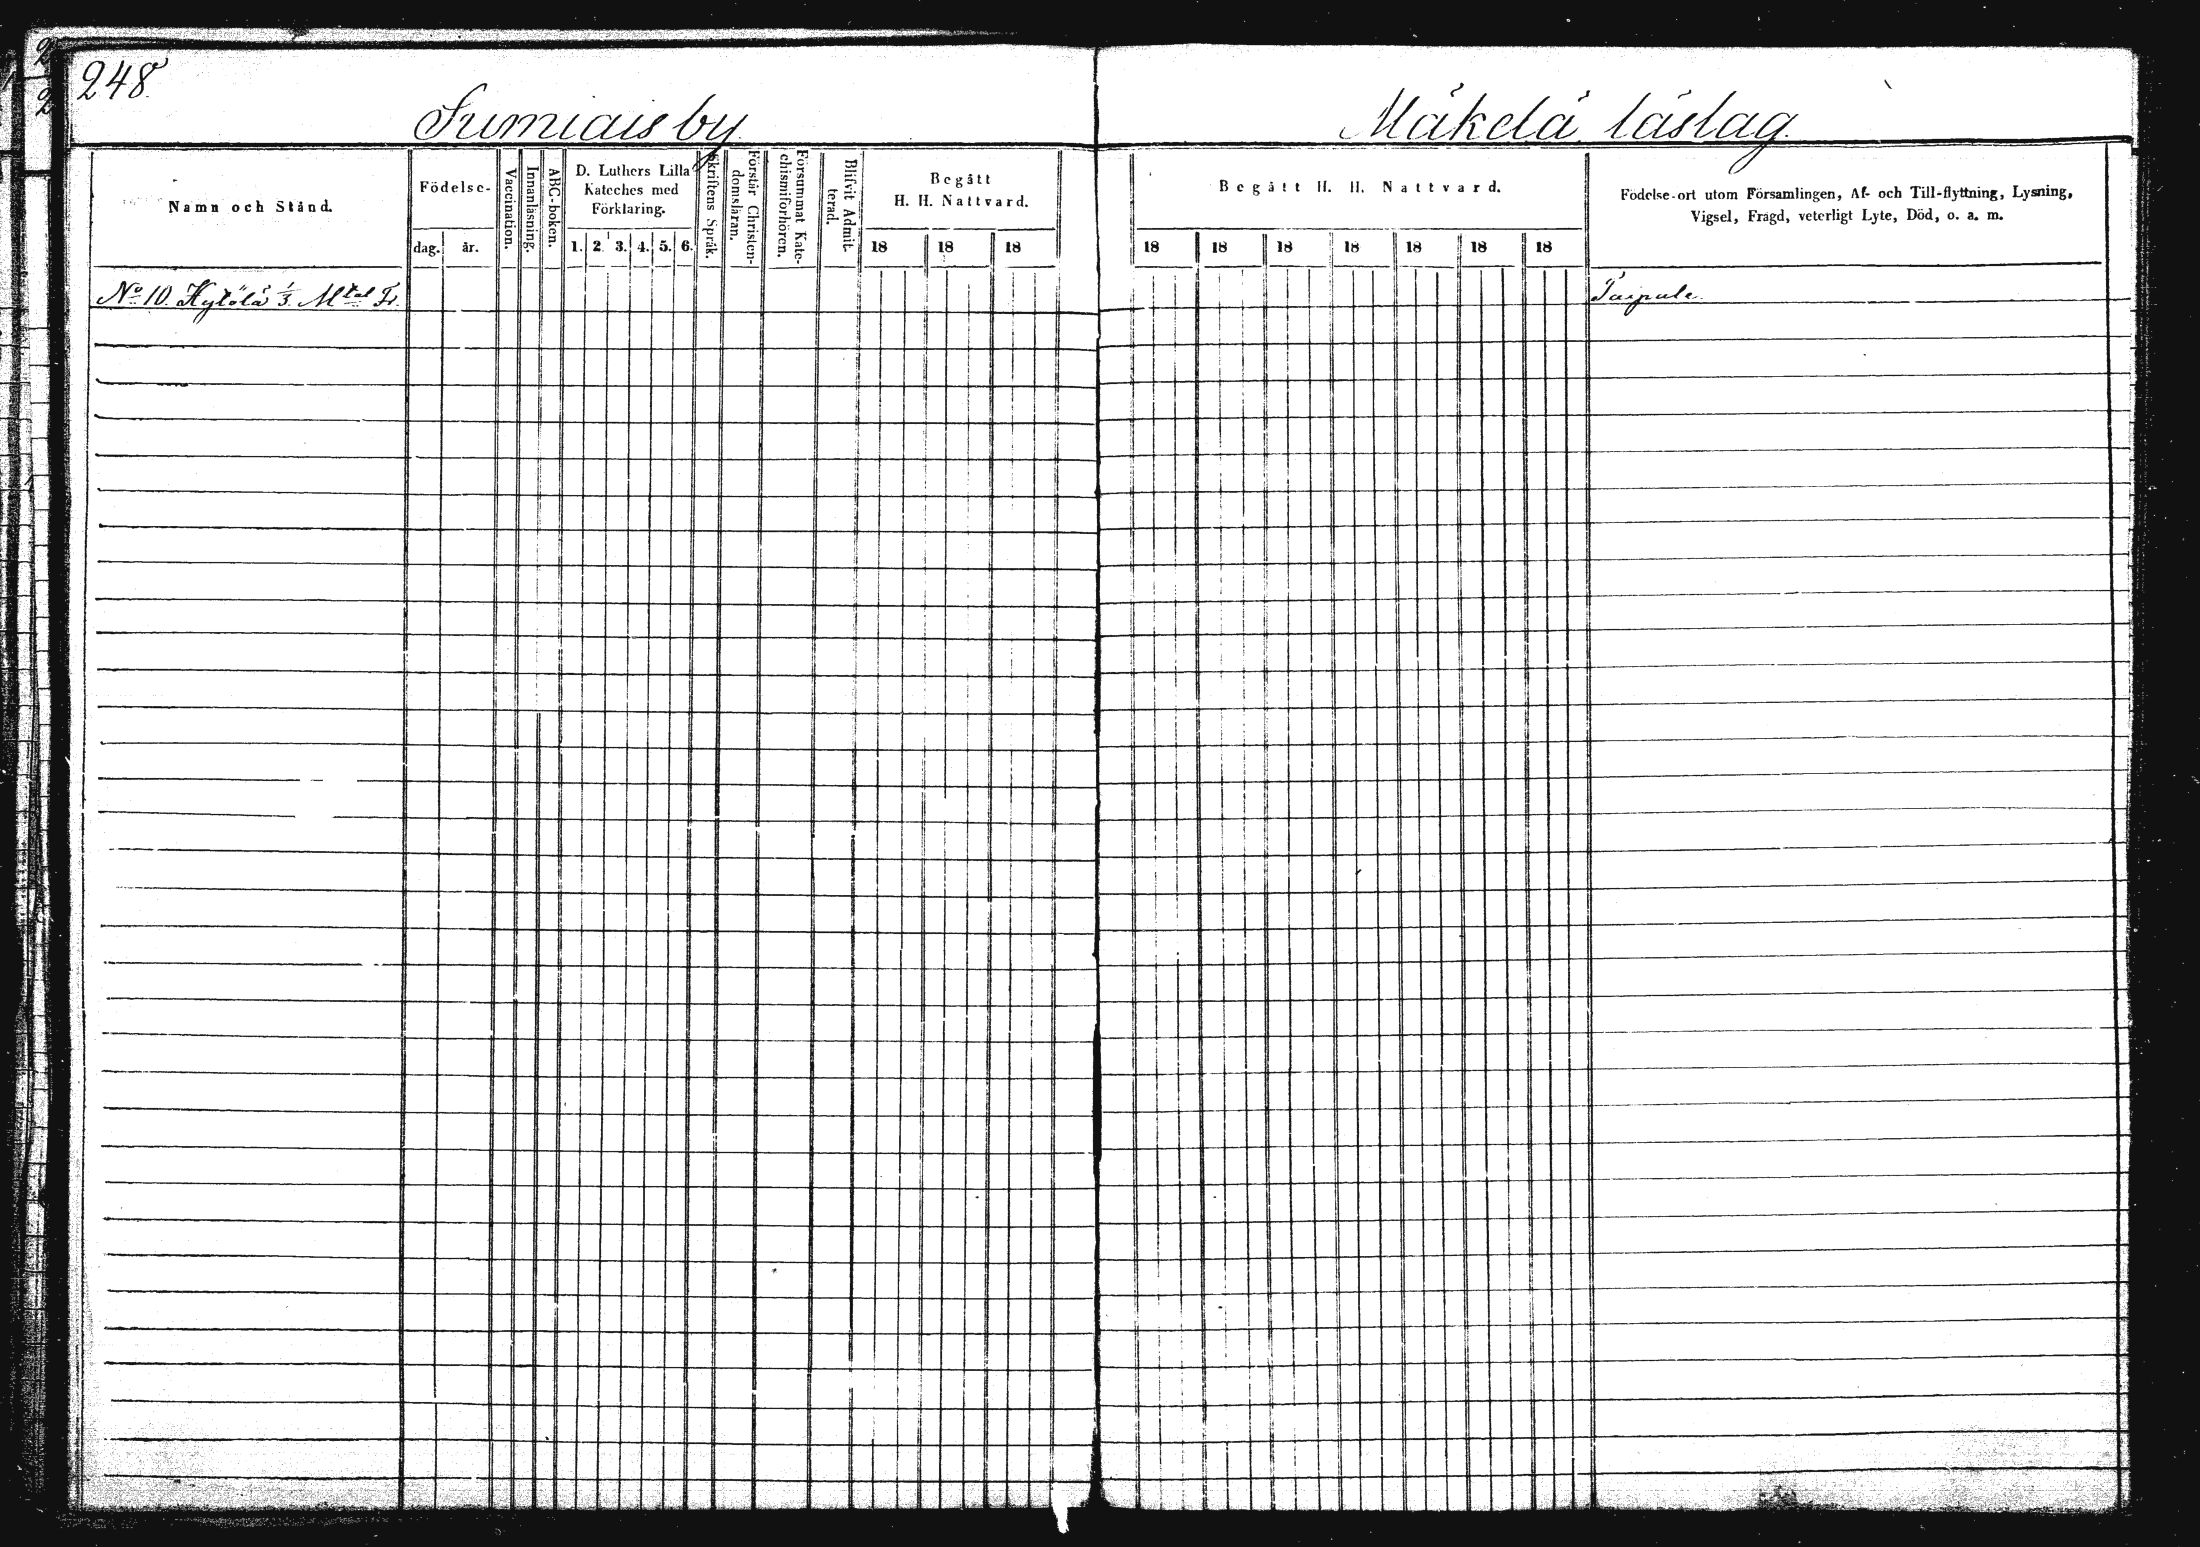 248
Sumiais by
Mäkelä läslag
Namn och Stånd.
Födelse-
dag.
år.
Vaccination.
Innanläsning.
ABC-boken.
D. Luthers Lilla
Kateches med
Förklaring.
1. 2. 3. 4. 5. 6.
Skriftens Språk.
Förstår Christen-
domsläran.
Försummat Kate-
chismiförhören.
Blifvit Admit-
terad.
Begått
H. H. Nattvard.
18 18 18
Begått H. H. Nattvard.
18 18 18 18 18 18 18
Födelse-ort utom Församlingen, Af- och Till-flyttning, Lysning,
Vigsel, Frägd, veterligt Lyte, Död, o. a. m.
No 10. Hytölä 1/3 Mtal Fr.
Taipale